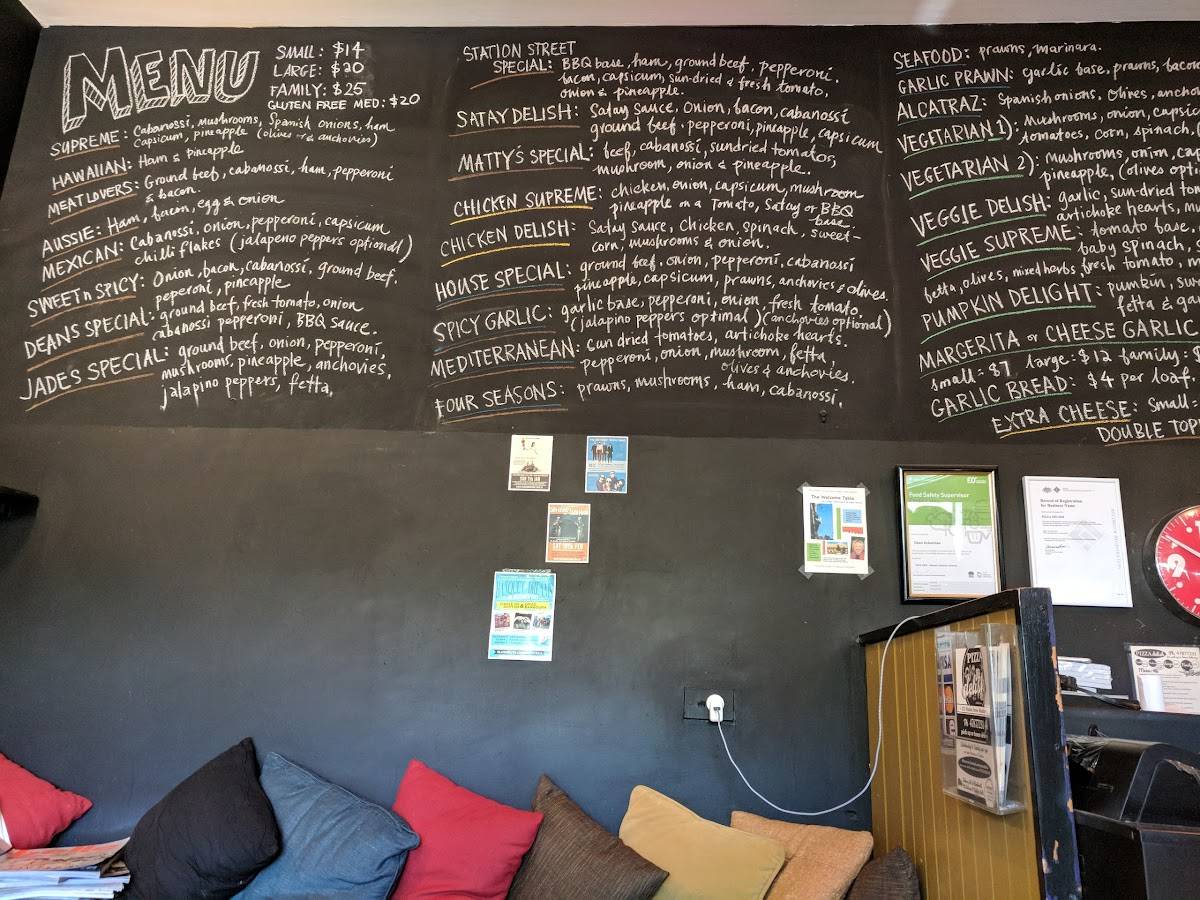 MENU
SMALL: $14
LARGE: $20
FAMILY: $25
GLUTEN FREE MED: $20
SUPREME: Cabanossi, Mushrooms, Spanish onions, ham
Capsicum, pineapple (olives & anchovies)
HAWAIIAN: Ham & pineapple
MEATLOVERS: Ground beef, cabanossi, ham, pepperoni
& bacon.
AUSSIE: Ham, bacon, egg & onion
MEXICAN: Cabanossi, onion, pepperoni, capsicum
chilli flakes (jalapeno peppers optional)
SWEET n SPICY: Onion, bacon, cabanossi, ground beef.
peperoni, pineapple
DEANS SPECIAL: ground beef, fresh tomato, onion
cabanossi pepperoni, BBQ sauce.
JADES SPECIAL: ground beef, onion, pepperoni,
mushrooms, pineapple, anchovies,
jalapino peppers, fetta,
STATION STREET
SPECIAL: BBQ base, ham, ground beef, pepperoni.
bacon, capsicum, sun-dried & fresh tomato,
onion & pineapple.
SATAY DELISH: Satay sauce, onion, bacon, cabanossi
ground beef. pepperoni, pineapple, capsicum
MATTY'S SPECIAL: beef, cabanossi, sundried tomatoes,
mushroom, onion & pineapple.
CHICKEN SUPREME: chicken, onion, capsicum, mushroom
pineapple on a Tomato, Satay or BBQ
base
CHICKEN DELISH: Satay sauce, Chicken, spinach, sweet-
corn, mushrooms & onion.
HOUSE SPECIAL: ground beef, onion, pepperoni, cabanossi
pineapple, capsicum, prawns, anchovies & olives.
SPICY GARLIC: garlic base, pepperoni, onion, fresh tomato.
(jalapino peppers optimal) (anchovies optional)
MEDITERRANEAN: Sun dried tomatoes, artichoke hearts.
pepperoni, onion, mushroom, fetta,
olives & anchovies.
FOUR SEASONS: prawns, mushrooms, ham, cabanossi.
SEAFOOD: prawns, marinara.
GARLIC PRAWN: garlic base, prawns, bacon
ALCATRAZ: Spanish onions, olives, ancho
VEGETARIAN 1): Mushrooms, onion, capsic
tomatoes, corn, spinach,
VEGETARIAN 2): Mushrooms, onion, cap
pineapple, (olives opti
VEGGIE DELISH: garlic, sun-dried to
artichoke hearts, mu
VEGGIE SUPREME: tomato base,
baby spinach,
fetta, olives, mixed herbs, fresh tomato, m
PUMPKIN DELIGHT: pumkin, sun
fetta & ga
MARGERITA or CHEESE GARLIC
small: $7 large: $12 family: $
GARLIC BREAD: $4 per loaf.
EXTRA CHEESE: Small:
DOUBLE TOP
The Welcome Table
Food Safety Supervisor
Record of Registration
for Business Name